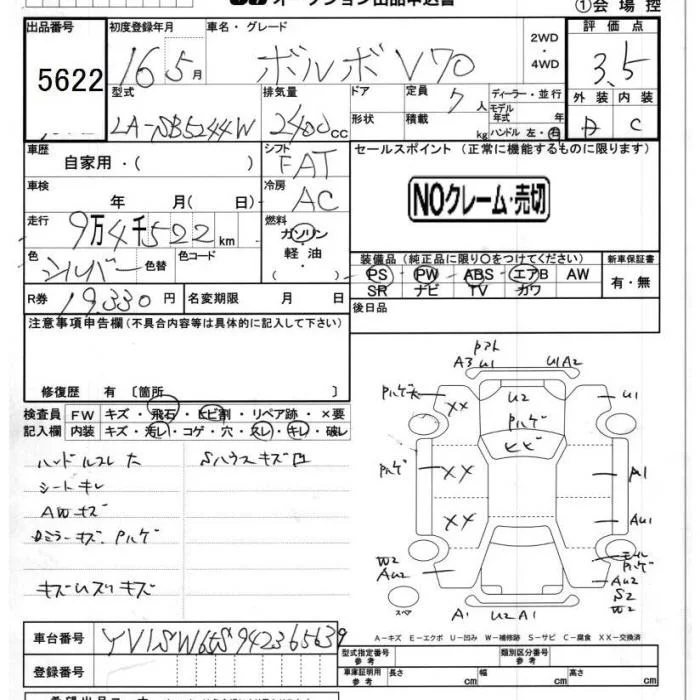 オークション出品申込書 ①会場控
出品番号 初度登録年月 車名・グレード 2WD・4WD 評価点
5622 16 5月 ボルボ V70 3.5
型式 排気量 ドア 定員 7人 ディーラー・並行 外装 内装
LA-SB5244W 2400cc 形状 積載 kg モデル年式 年 ハンドル 左・右 C
車歴 シフト セールスポイント (正常に機能するものに限ります)
自家用・( ) FAT
車検 冷房 NOクレーム・売切
年 月 ( 日) AC
走行 燃料
9万4千522km ガソリン・軽油
色 シルバー 色替 色コード ( )
装備品 (純正品に限り〇をつけてください) 新車保証書
PS PW ABS エアB AW 有・無
SR ナビ TV カワ
R券 19.330円 名変期限 月 日 後日品
注意事項申告欄(不具合内容等は具体的に記入して下さい)
修復歴 有 〔箇所 〕
検査員 FW キズ・飛石・ヒビ割・リペア跡・×要
記入欄 内装 キズ・汚レ・コゲ・穴・スレ・キレ・破レ
ハンドルスレ大 Sハウスキズ凹
シートキレ
AWキズ
Dミラーキズ、Pハゲ
A3 U1 U1 A2
U2
Pハゲ
ヒビ
XX
U1
Pハゲ XX A1
XX AU1
W2
AU2
Pハゲ
AU2
S2
W2
スペア A1 U2 A1
A-キズ E-エクボ U-凹み W-補修跡 S-サビ C-腐食 XX-交換済
車台番号 YV1SW65S942365639
型式指定番号 参考 類別区分番号 参考
登録番号 車庫証明用 参考 長さ cm 幅 cm 高さ cm